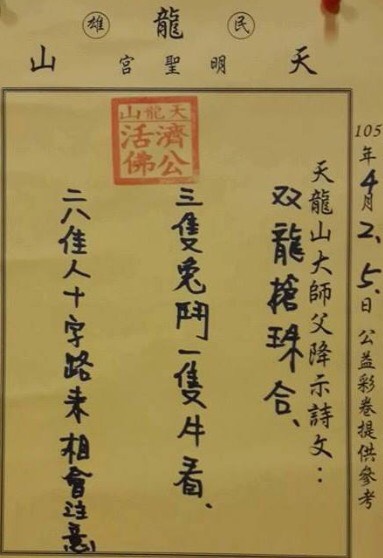 雄 龍 民
山 宮聖明 天
105年4月2、5、日公益彩卷提供參考
天龍山大師父降示詩文：
双龍搶珠合、
天龍山
濟公
活佛
三隻兔鬥一隻牛看、
二八佳人十字路來相會注意